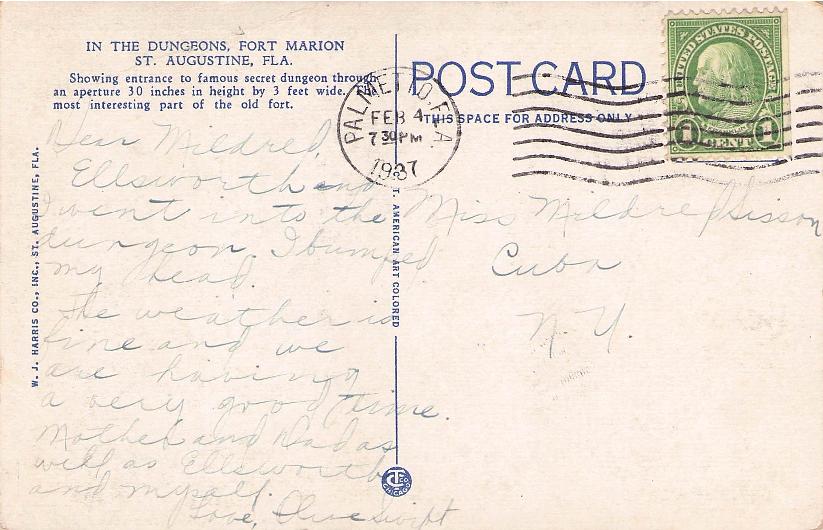 IN THE DUNGEONS, FORT MARION
ST. AUGUSTINE, FLA.
Showing entrance to famous secret dungeon through
an aperture 30 inches in height by 3 feet wide. The
most interesting part of the old fort.
POST CARD
THIS SPACE FOR ADDRESS ONLY
PALMETTO, FLA.
FEB 4
7 30 PM
1937
UNITED STATES POSTAGE
1 CENT 1
W. J. HARRIS CO., INC., ST. AUGUSTINE, FLA.
C. T. AMERICAN ART COLORED
Dear Mildred,
Ellsworth and
I went into the
dungeon. I bumped
my head.
The weather is
fine and we
are having
a very good time.
Mother and Dad as
well as Ellsworth
and myself.
Love, Olive Swift
Miss Mildred Sisson
Cuba
N. Y.
CHICAGO